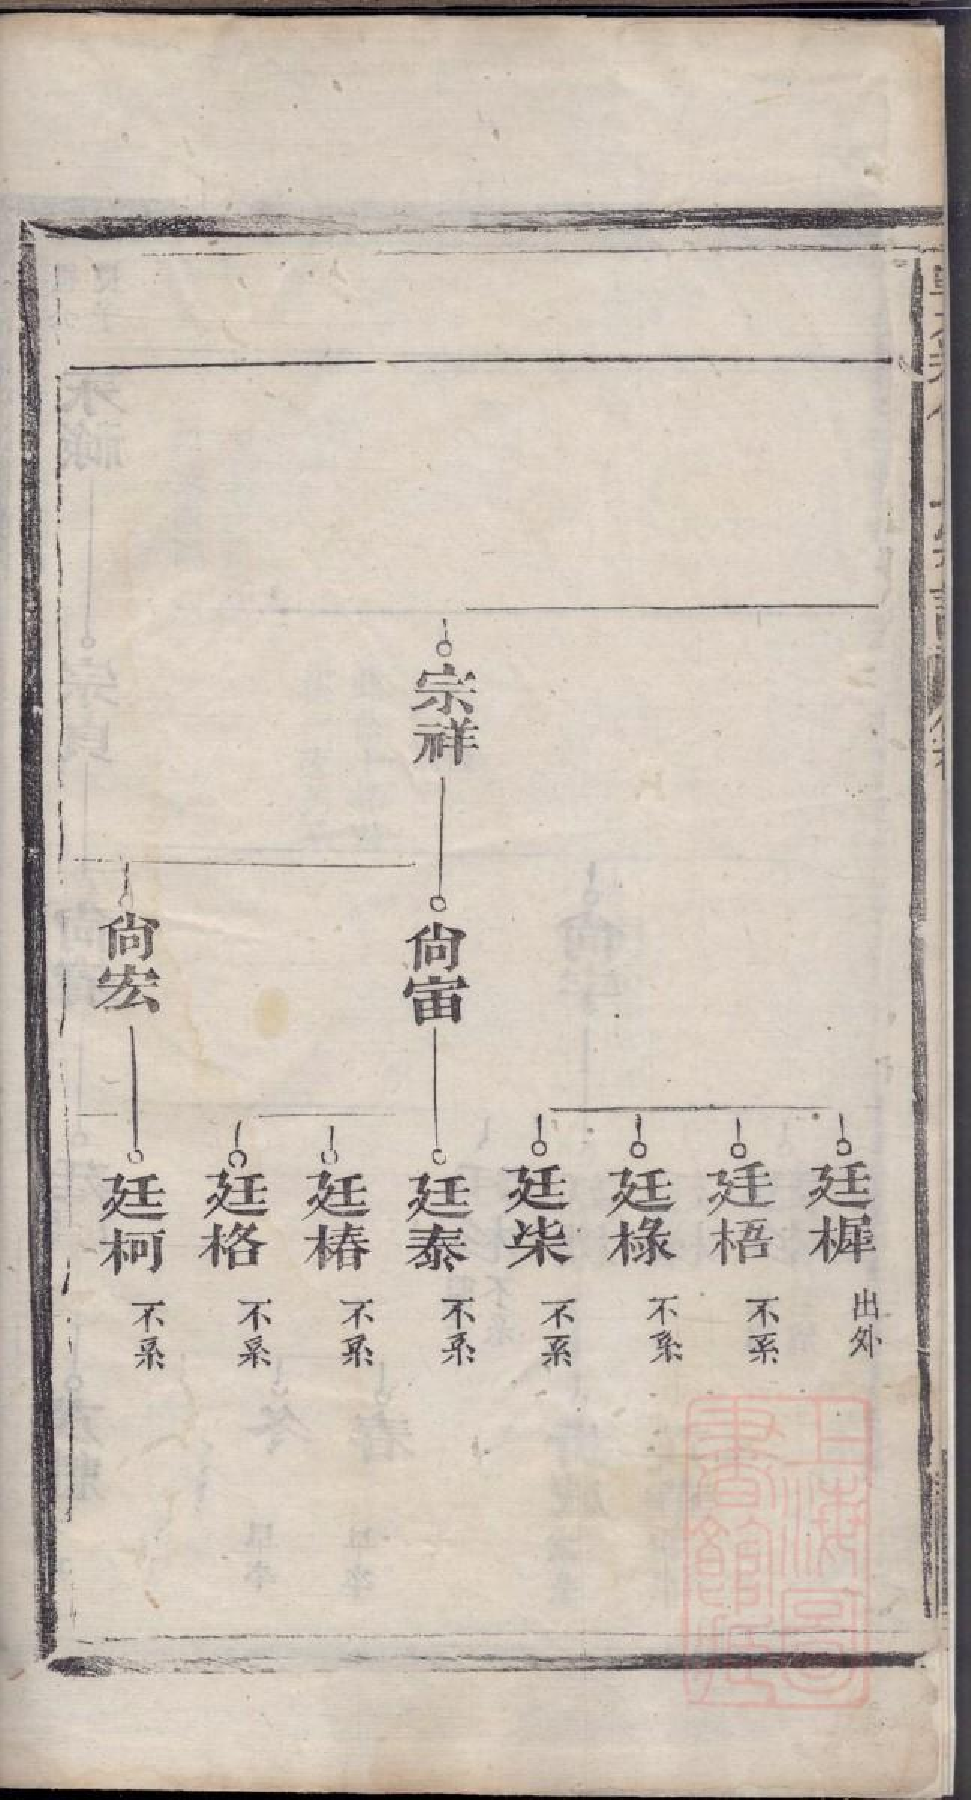 宗祥
尙宙
尙宏
廷樨 出外
廷梧 不系
廷椂 不系
廷柴 不系
廷泰 不系
廷椿 不系
廷格 不系
廷柯 不系
上海圖書館藏